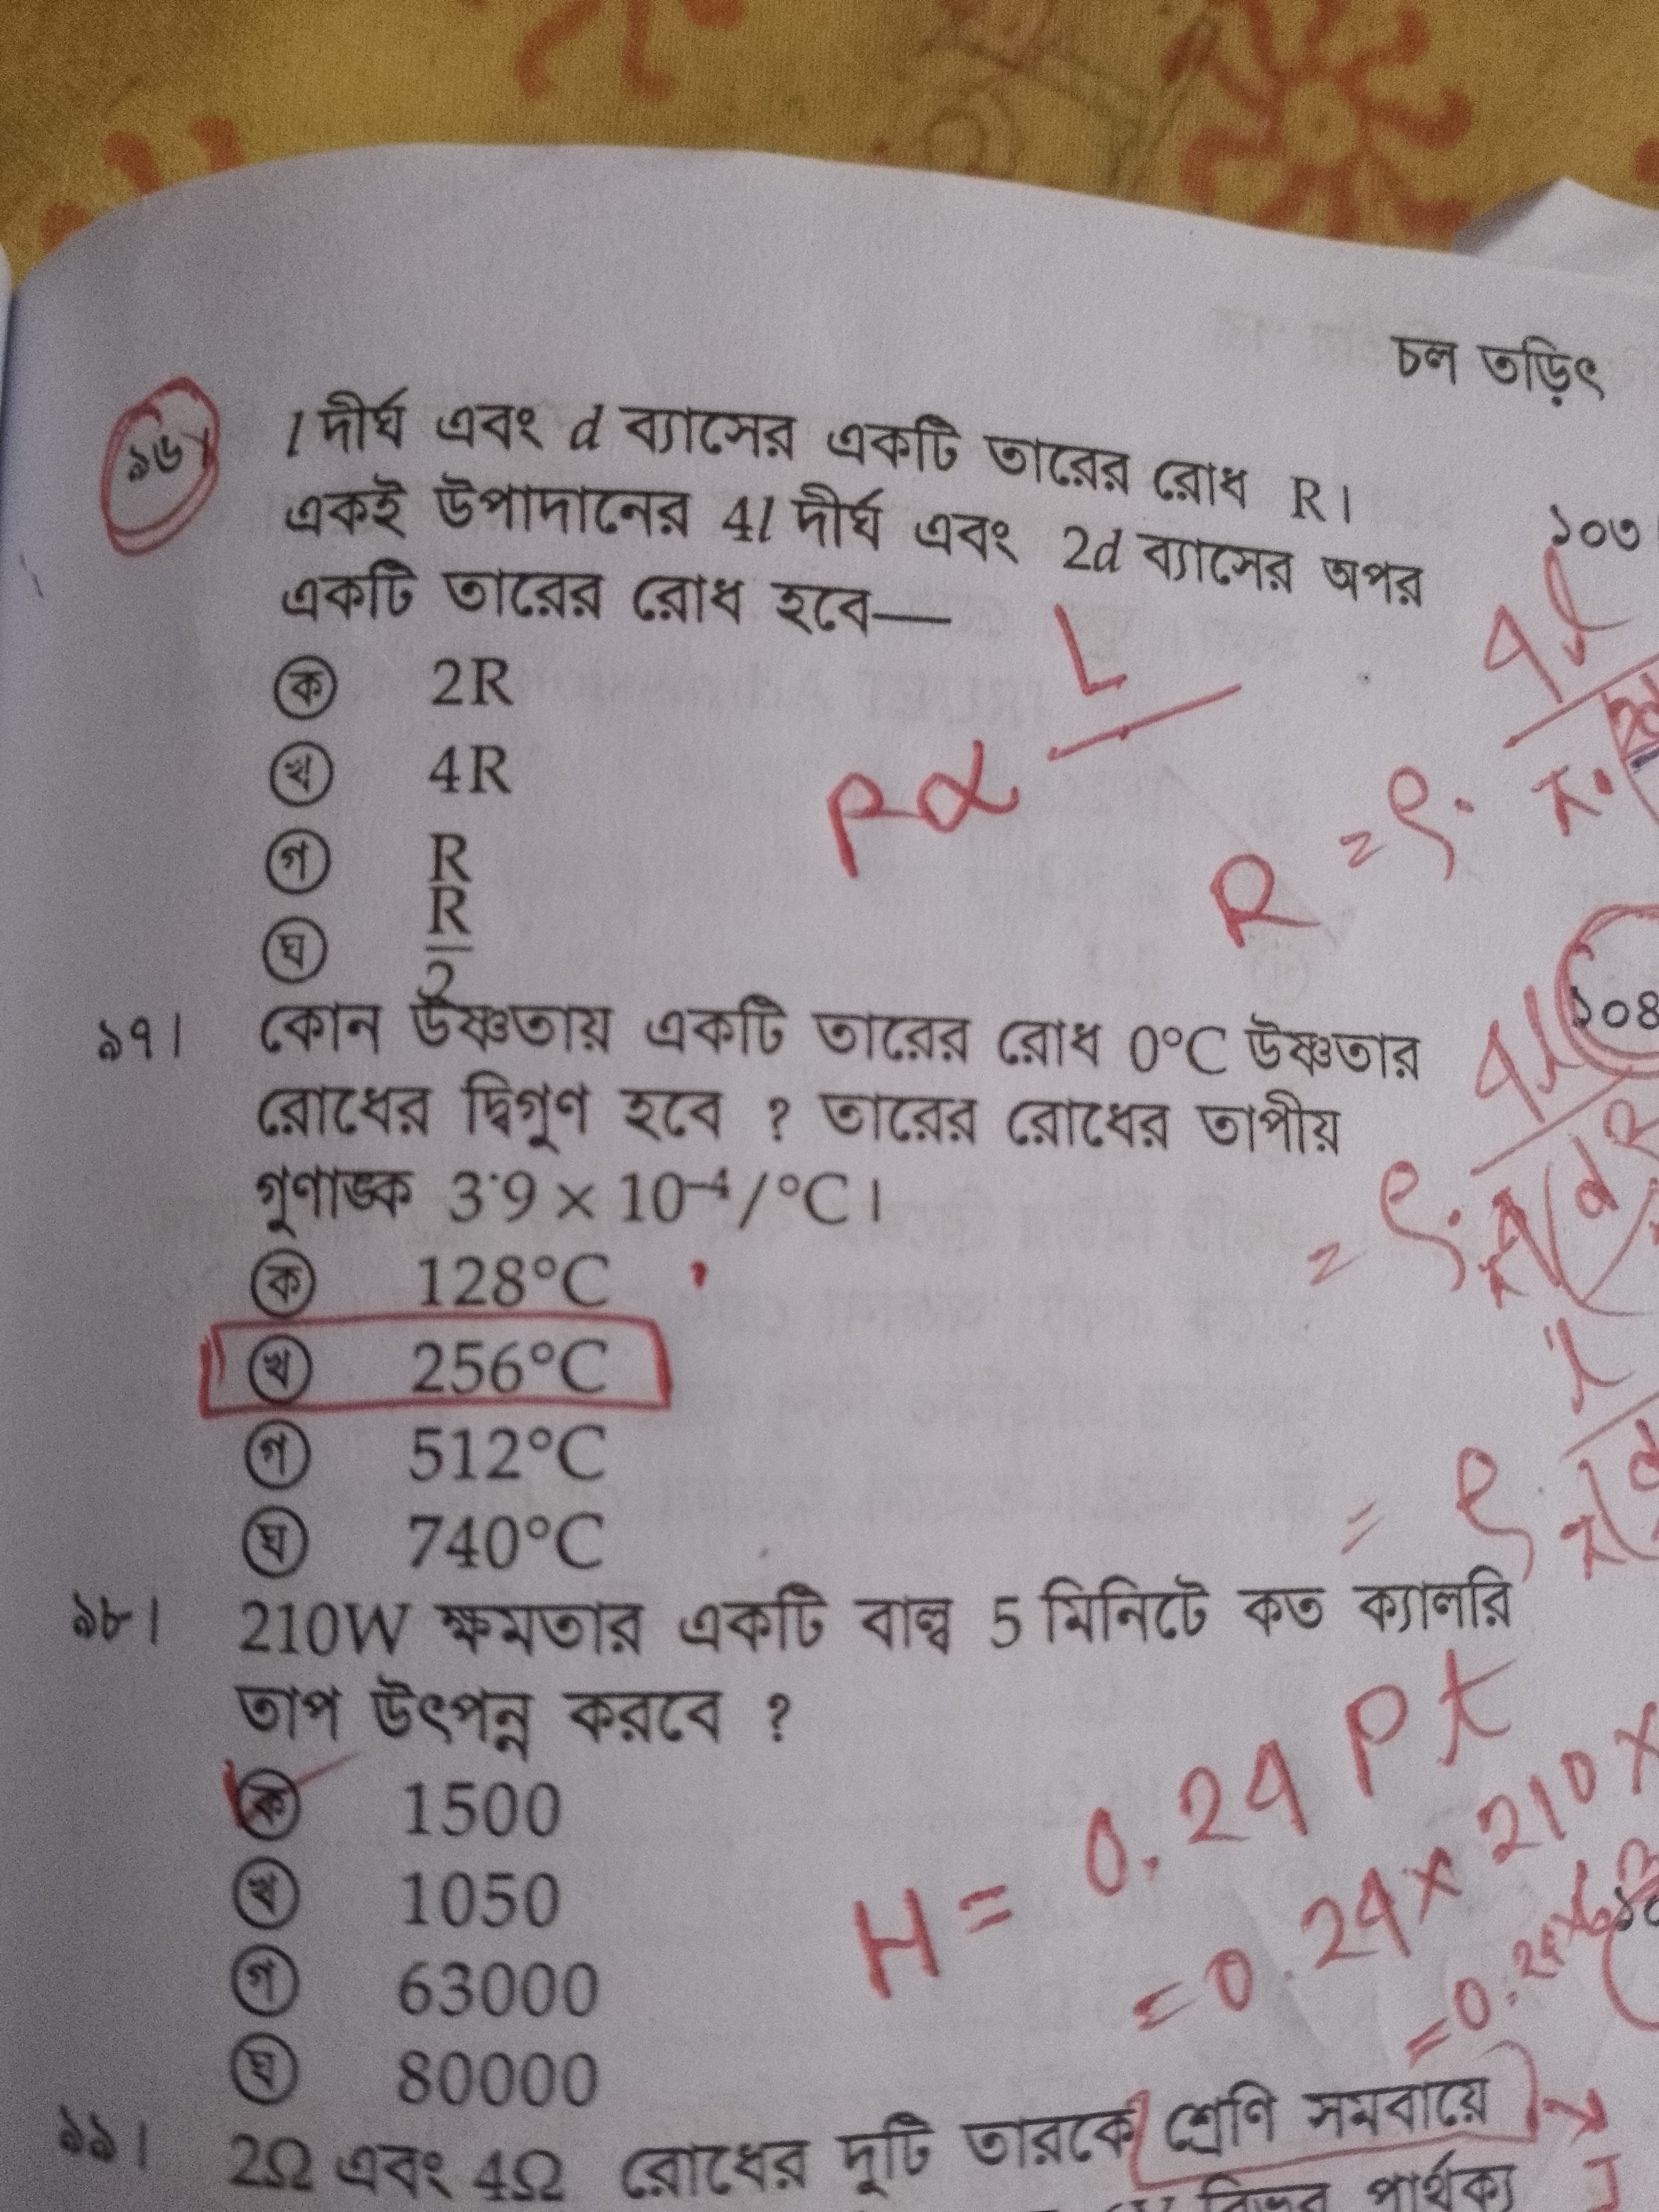 চল তড়িৎ
৯৬।
l দীর্ঘ এবং d ব্যাসের একটি তারের রোধ R।
একই উপাদানের 4l দীর্ঘ এবং 2d ব্যাসের অপর
একটি তারের রোধ হবে—
ক 2R
খ 4R
গ R
ঘ R/2
L
R =
৯৭। কোন উষ্ণতায় একটি তারের রোধ 0°C উষ্ণতার
রোধের দ্বিগুণ হবে ? তারের রোধের তাপীয়
গুণাঙ্ক 3·9 × 10⁻⁴/°C।
ক 128°C
খ 256°C
গ 512°C
ঘ 740°C
৯৮। 210W ক্ষমতার একটি বাল্ব 5 মিনিটে কত ক্যালরি
তাপ উৎপন্ন করবে ?
ক 1500
খ 1050
গ 63000
ঘ 80000
H = 0.24 Pt
= 0.24 × 210 ×
৯৯। 2Ω এবং 4Ω রোধের দুটি তারকে শ্রেণি সমবায়ে
পার্থক্য
১০৩
১০৪